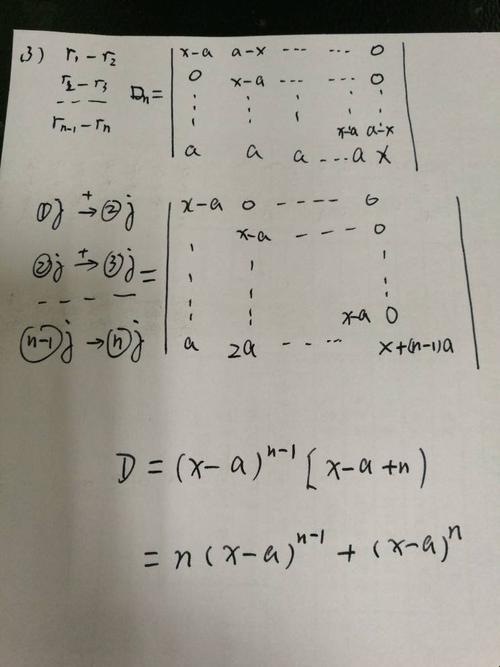 (3) r₁-r₂
r₂-r₃
- - -
rₙ₋₁-rₙ
Dₙ = | x-a a-x --- --- 0
0 x-a --- --- 0
x-a a-x
a a a ...a x |
①j +→ ②j
②j +→ ③j
- - - -
(n-1)j → (n)j
= | x-a 0 ---- 0
x-a --- 0
x-a 0
a 2a ---- x+(n-1)a |
D = (x-a)ⁿ⁻¹ [x-a+n)
= n(x-a)ⁿ⁻¹ + (x-a)ⁿ